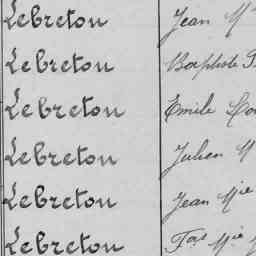 Lebreton Jean M
Lebreton Baptiste
Lebreton Emile
Lebreton Julien M
Lebreton Jean Mie
Lebreton Fois Mie